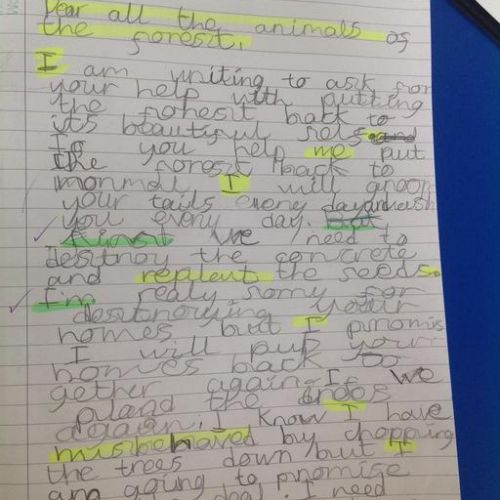 Dear all the animals of
the foresit.
I am writing to ask for
your help with putting
the forhesit back to
its beautiful sels
If you help me put
the foresit back to
monmal I will groom
your tails eveny day and wash
you eveny day. But
finst we need to
desitnoy the concrete
and replent the seeds.
I'm realy sorny for
desitnoying your
homes but I pnomis
I will put your
homes back to
gether again. If we
pland the trees
again. I know I have
misbehaved by chopping
the trees down but I
am going to pnomise
deal. I need